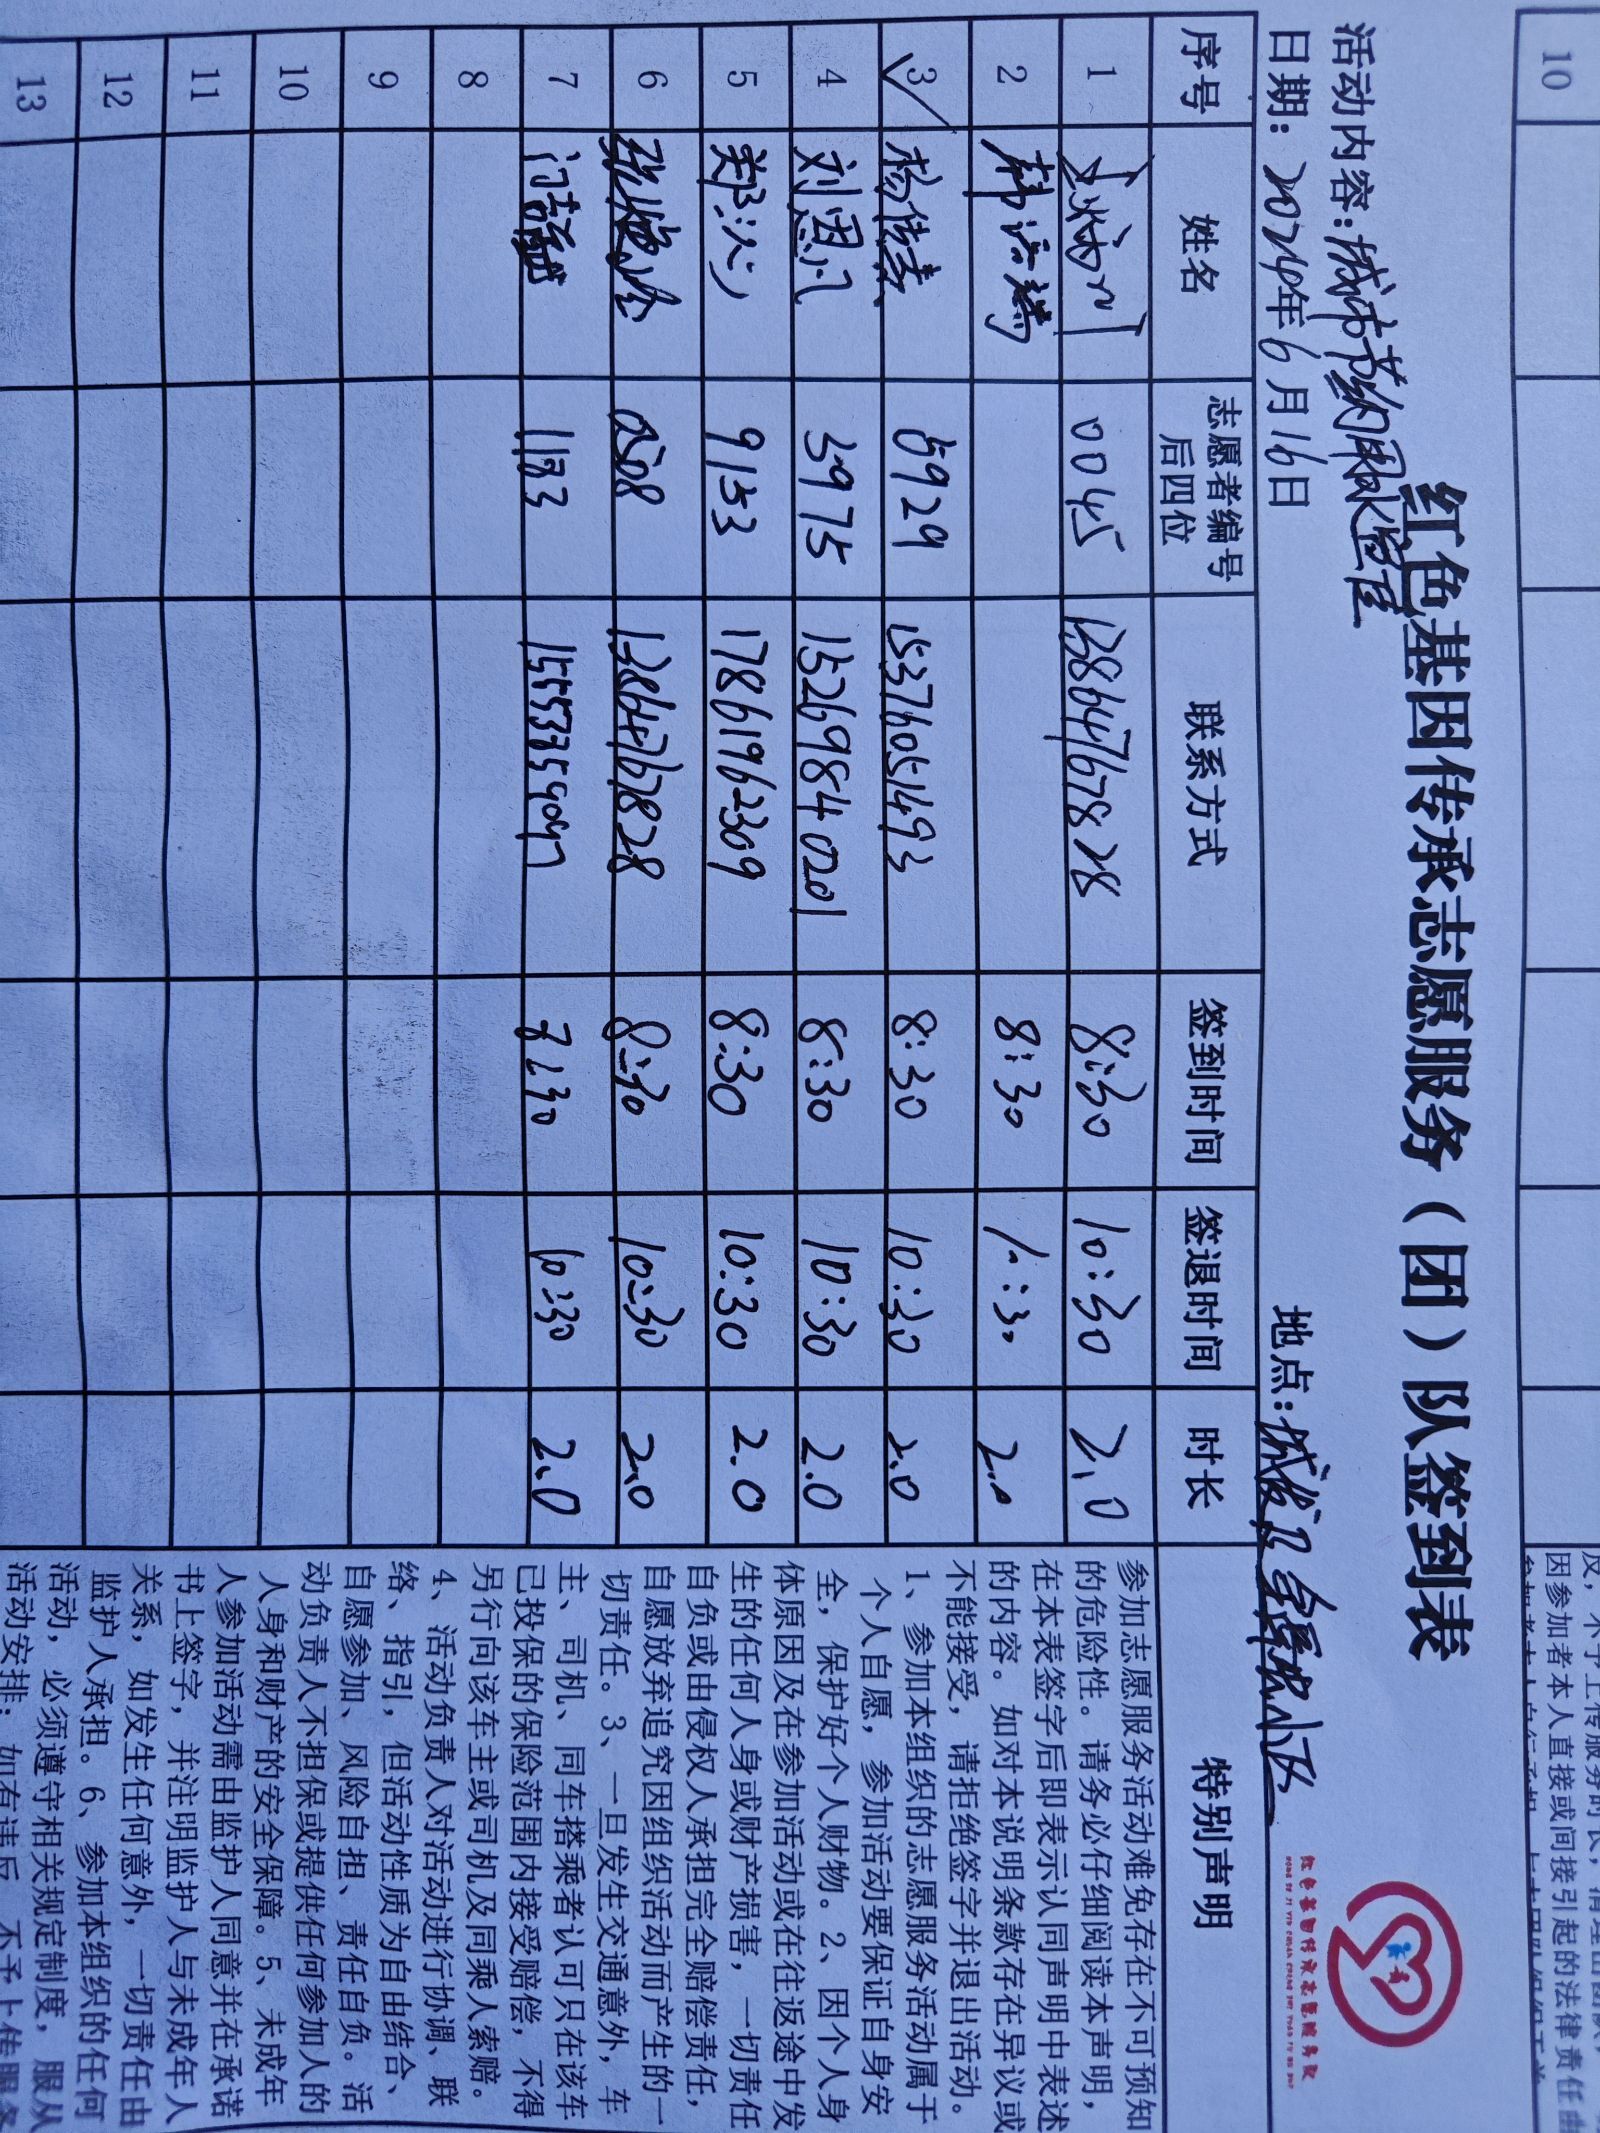 10
及，不予上传服务时长，清理出团队，
因参加者本人直接或间接引起的法律责任由
红色基因传承志愿服务（团）队签到表
活动内容：城市
日期：2024年6月16日
地点：小区
红色基因传承志愿服务队
序号 姓名 志愿者编号后四位 联系方式 签到时间 签退时间 时长 特别声明
1 0045 13864767828 8:30 10:30 2.0
2 韩 8:30 10:30 2.0
3 杨 5929 15376051493 8:30 10:30 2.0
4 刘恩凡 3975 15269840201 8:30 10:30 2.0
5 郑 9153 17861962309 8:30 10:30 2.0
6 张 0508 13864767828 8:30 10:30 2.0
7 1183 8:30 10:30 2.0
8
9
10
11
12
13
参加志愿服务活动难免存在不可预知
的危险性。请务必仔细阅读本声明，
在本表签字后即表示认同声明中表述
的内容。如对本说明条款存在异议或
不能接受，请拒绝签字并退出活动。
1、参加本组织的志愿服务活动属于
个人自愿，参加活动要保证自身安
全，保护好个人财物。2、因个人身
体原因及在参加活动或在往返途中发
生的任何人身或财产损害，一切责任
自负或由侵权人承担完全赔偿责任，
自愿放弃追究因组织活动而产生的一
切责任。3、一旦发生交通意外，车
主、司机、同车搭乘者认可只在该车
已投保的保险范围内接受赔偿，不得
另行向该车主或司机及同乘人索赔。
4、活动负责人对活动进行协调、联
络、指引，但活动性质为自由结合、
自愿参加、风险自担、责任自负。活
动负责人不担保或提供任何参加人的
人身和财产的安全保障。5、未成年
人参加活动需由监护人同意并在承诺
书上签字，并注明监护人与未成年人
关系，如发生任何意外，一切责任由
监护人承担。6、参加本组织的任何
活动，必须遵守相关规定制度，服从
活动安排；如有违反，不予上传服务